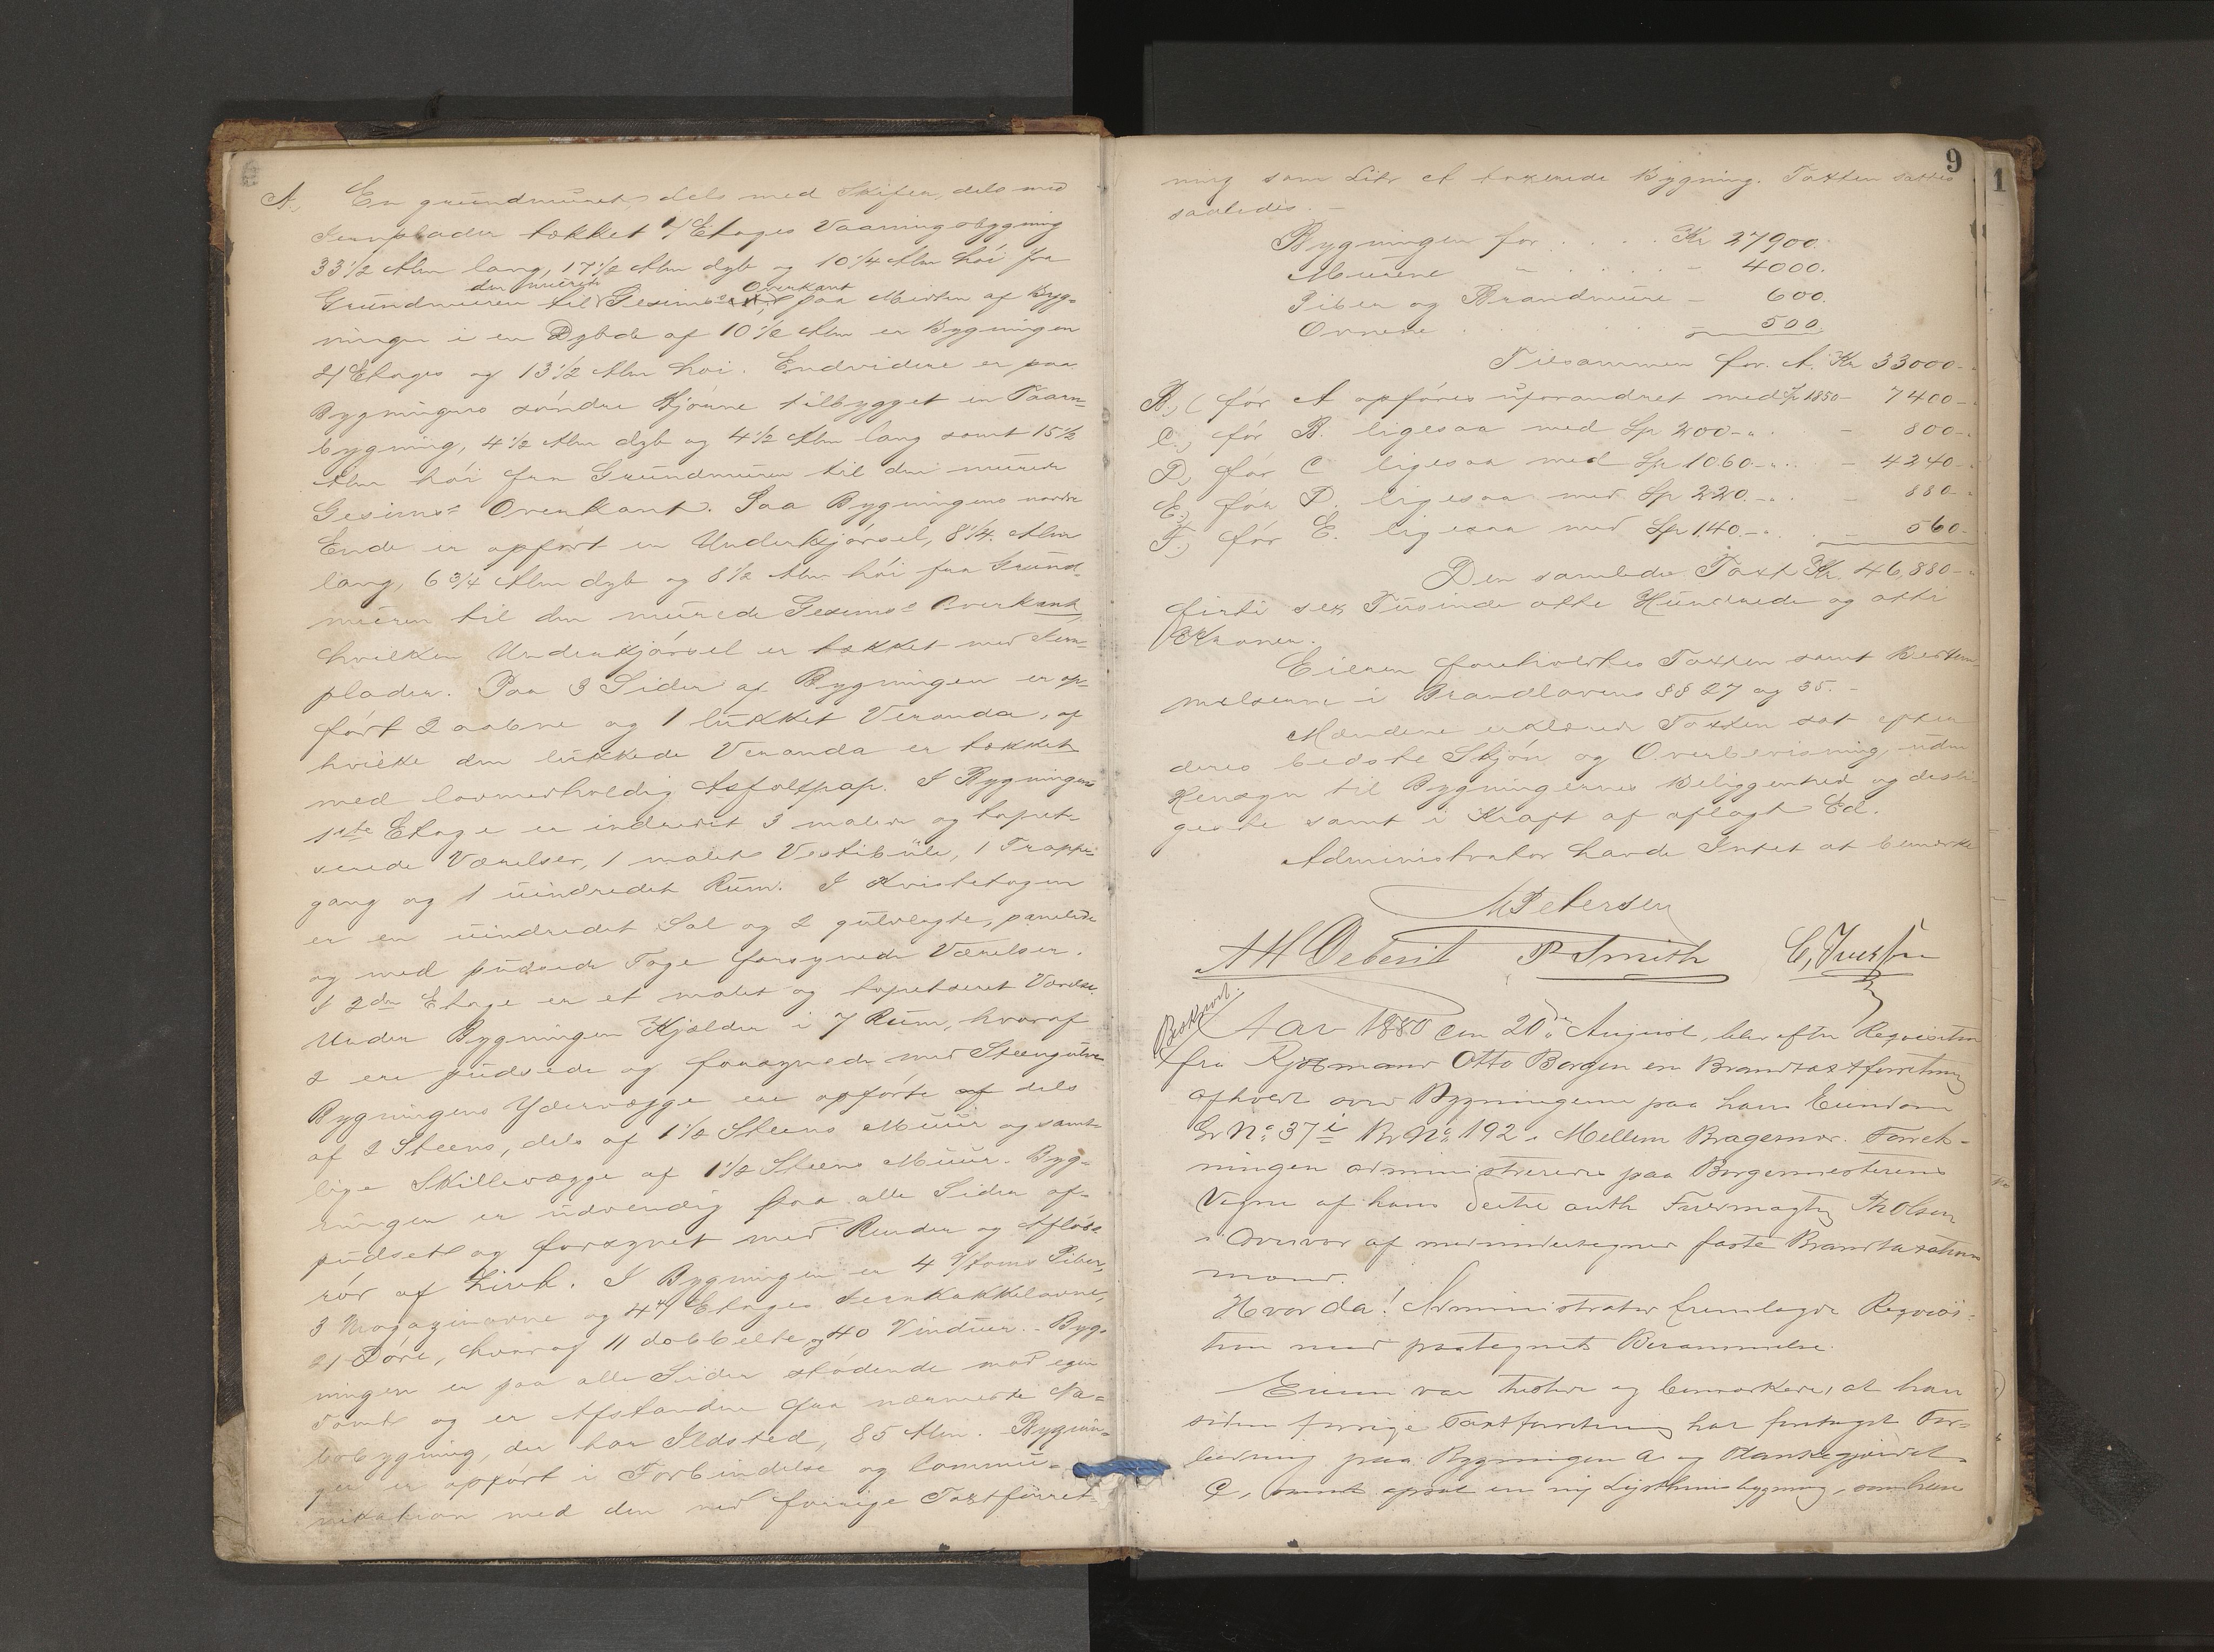 A., En grundmuret, dels med Skifer, dels med
Jernplader tækket 1/ Etages Vaaningsbygning
33 1/2 Alen lang, 17 1/2 Alen dyb og 10 1/4 Alen høi fra
den murede Overkant
Grundmuren til Gesims paa Midten af Byg-
ningen i en Dybde af 10 1/2 Alen er Bygningen
2/ Etages og 13 1/2 Alen høi. Endvidere er paa
Bygningens søndre Hjørne tilbygget en Taarn-
bygning, 4 1/2 Alen dyb og 4 1/2 Alen lang samt 15 1/2
Alen høi fra Grundmuren til den murede
Gesims's Overkant. Paa Bygningens nordre
Ende er opført en Underkjørsel, 8 1/4 Alen
lang, 6 3/4 Alen dyb og 8 1/2 Alen høi fra Grund-
muren til den murede Gesims's Overkant,
hvilken Underkjørsel er tækket med Jern-
plader. Paa 3 Sider af Bygningen er op-
ført 2 aabne og 1 lukket Veranda, af
hvilke den lukkede Veranda er tækket
med lovmedholdig Asfaltpap. I Bygningens
1ste Etage er indredet 3 malede og tapet-
serede Værelser, 1 malet Vestibule, 1 Trappe-
gang og 1 uindredet Rum. I Kvistetagen
er en uindredet Sal og 2 gulvlagte, panelede
og med pudsede Tage forsynede Værelser.
I 2den Etage er et malet og tapetseret Værelse.
Under Bygningen Kjælder i 7 Rum, hvoraf
2 ere pudsede og forsynede med Steengulve
Bygningens Ydervægge ere opførte af dels
af 2 Steens, dels af 1 1/2 Steens Muur og samt-
lige Skillevægge af 1 1/2 Steens Muur. Byg-
ningen er udvendig paa alle Sider af-
pudset og forsynet med Render og Afløbs-
rør af Zink. I Bygningen er 4 Piber,
3 Magazinovne og 4 Etages Jernkakkelovne,
21 Døre, hvoraf 11 dobbelte og 40 Vinduer. Byg-
ningen er paa alle Sider stødende mod egen
Tomt og er Afstanden fra nærmeste Na-
bobygning, der har Ildsted, 85 Alen. Bygnin-
gen er opført i Forbindelse og Commu-
nikation med den ved forrige Taxtforret-
9
ning som Litr A taxerede Bygning. Taxten sattes
saaledes. –
Bygningen for . . . . Kr 27900.
Murene " . . . . - 4000.
Piber og Brandmure - 600.
Ovnene . . . . - 500.
Tilsammen for A. Kr 33000-
B.) (før A opføres uforandret med Sp 1850 - 7400-
C.) før B. ligesaa med Sp 200-" . - 800-
D.) før C ligesaa med Sp 1060-" . - 4240-
E.) før D. ligesaa med Sp 220.-" . - 880-
F.) før E. ligesaa med Sp 140.-" . - 560-
Den samlede Taxt Kr. 46,880-
firti sex Tusinde otte Hundrede og otti
Kroner.
Eieren foreholdtes Taxten samt Bestem-
melserne i Brandlovens §§ 27 og 35. –
Mændene erklærede Taxten sat efter
deres bedste Skjøn og Overbevisning, uden
Hensyn til Bygningernes Beliggenhed og desli-
geste samt i Kraft af aflagt Ed.
Administrator havde Intet at bemærke
M Petersen
AH Deberit P Smith C, Iversen
Beskrevet.
Aar 1880 den 20de August, blev efter Requisition
fra Kjøbmand Otto Borgen en Brandtaxtforretning
afholdt over Bygningerne paa hans Eiendom
Gr No. 37 i Br No. 192 i Mellem Bragernes. Forret-
ningen administreredes paa Borgermesterens
Vegne af hans dertil auth Fuldmægtig Th Olsen
i Overvær af medundertegnede faste Brandtaxations-
mænd.
Hvorda! Administrator fremlagde Requisi-
tion med paategnet Berammelse.
Eieren var tilstede og bemærkede, at han
siden forrige Taxtforretning har foretaget For-
bedring paa Bygningen A og Plankegjærdet
C, samt opsat en ny Lysthusbygning, som han